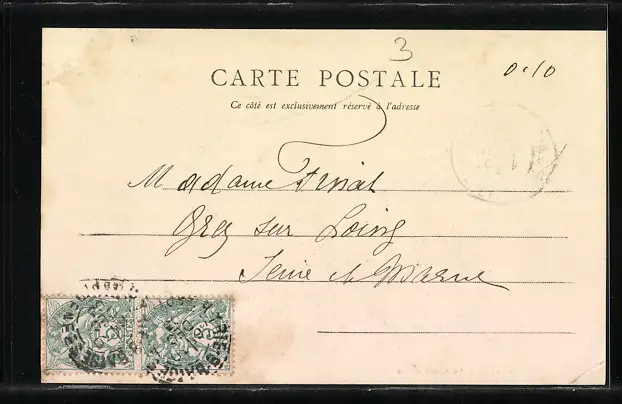 3
CARTE POSTALE
0,10
Ce côté est exclusivement réservé à l'adresse
Madame
Grez sur Loing
Seine et Marne